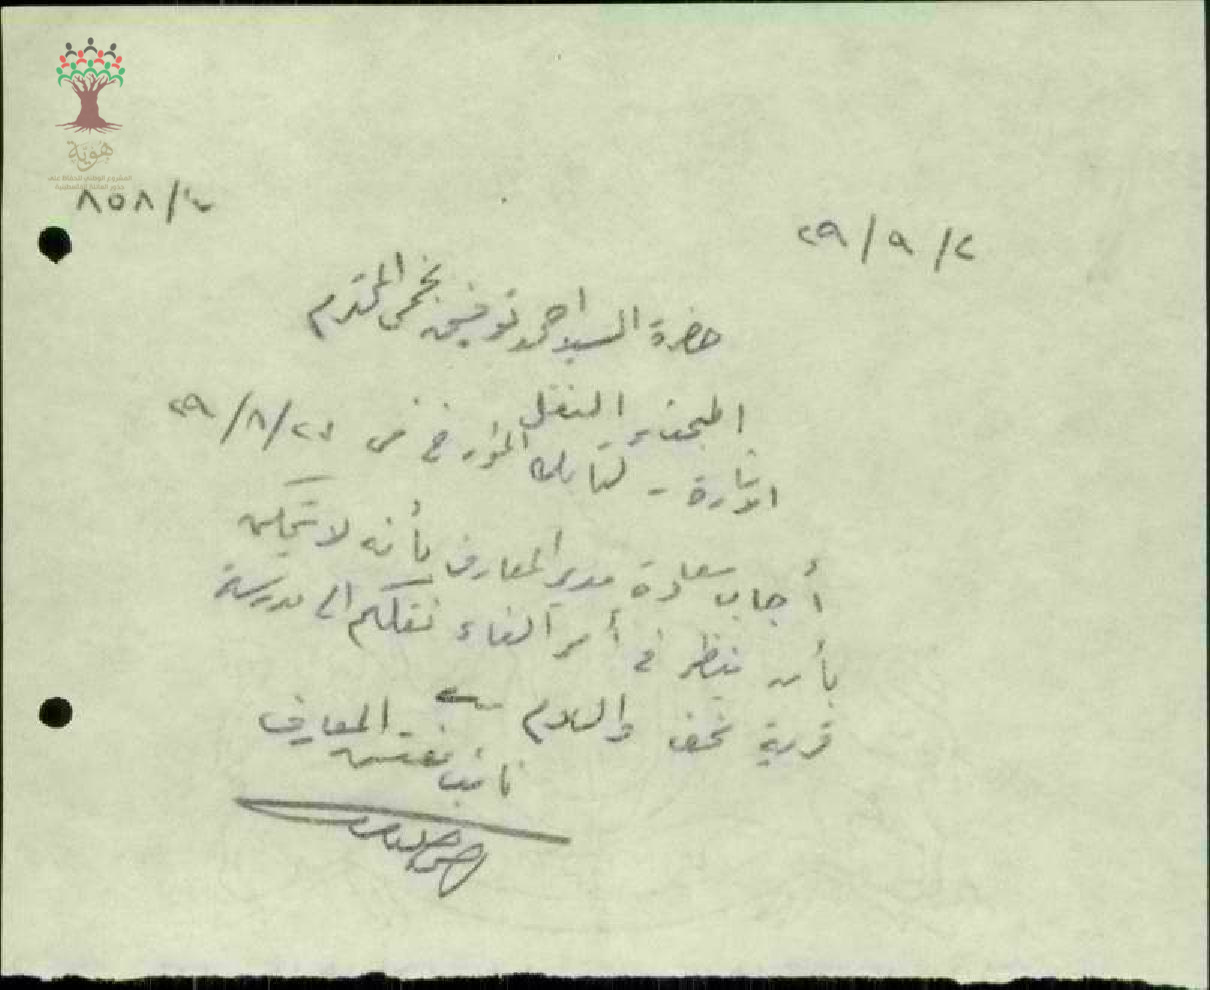 هُوِيَّة
المشروع الوطني للحفاظ على
جذور العائلة الفلسطينية
٨٥٨/
٢٩/٩/٢
حضرة السيد احمد توفيق المحترم
النقل
اشارة - لكتابك المؤرخ في ٢٩/٨/
أجاب سعادة مدير المعارف بأنه لا يتمكن
بأن ينظر في أمر الغاء نقلكم الى مدرسة
قرية نحف والسلام
نائب مفتش المعارف